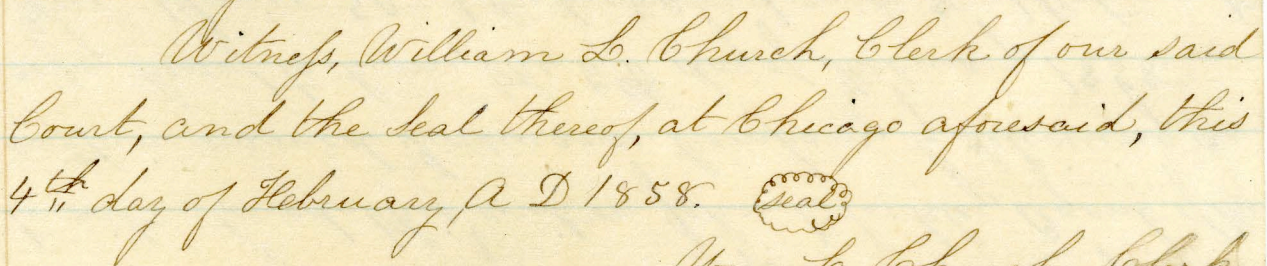 Witness, William L. Church, Clerk of our said
Court, and the Seal thereof, at Chicago aforesaid, this
4th day of February, A D 1858. seal